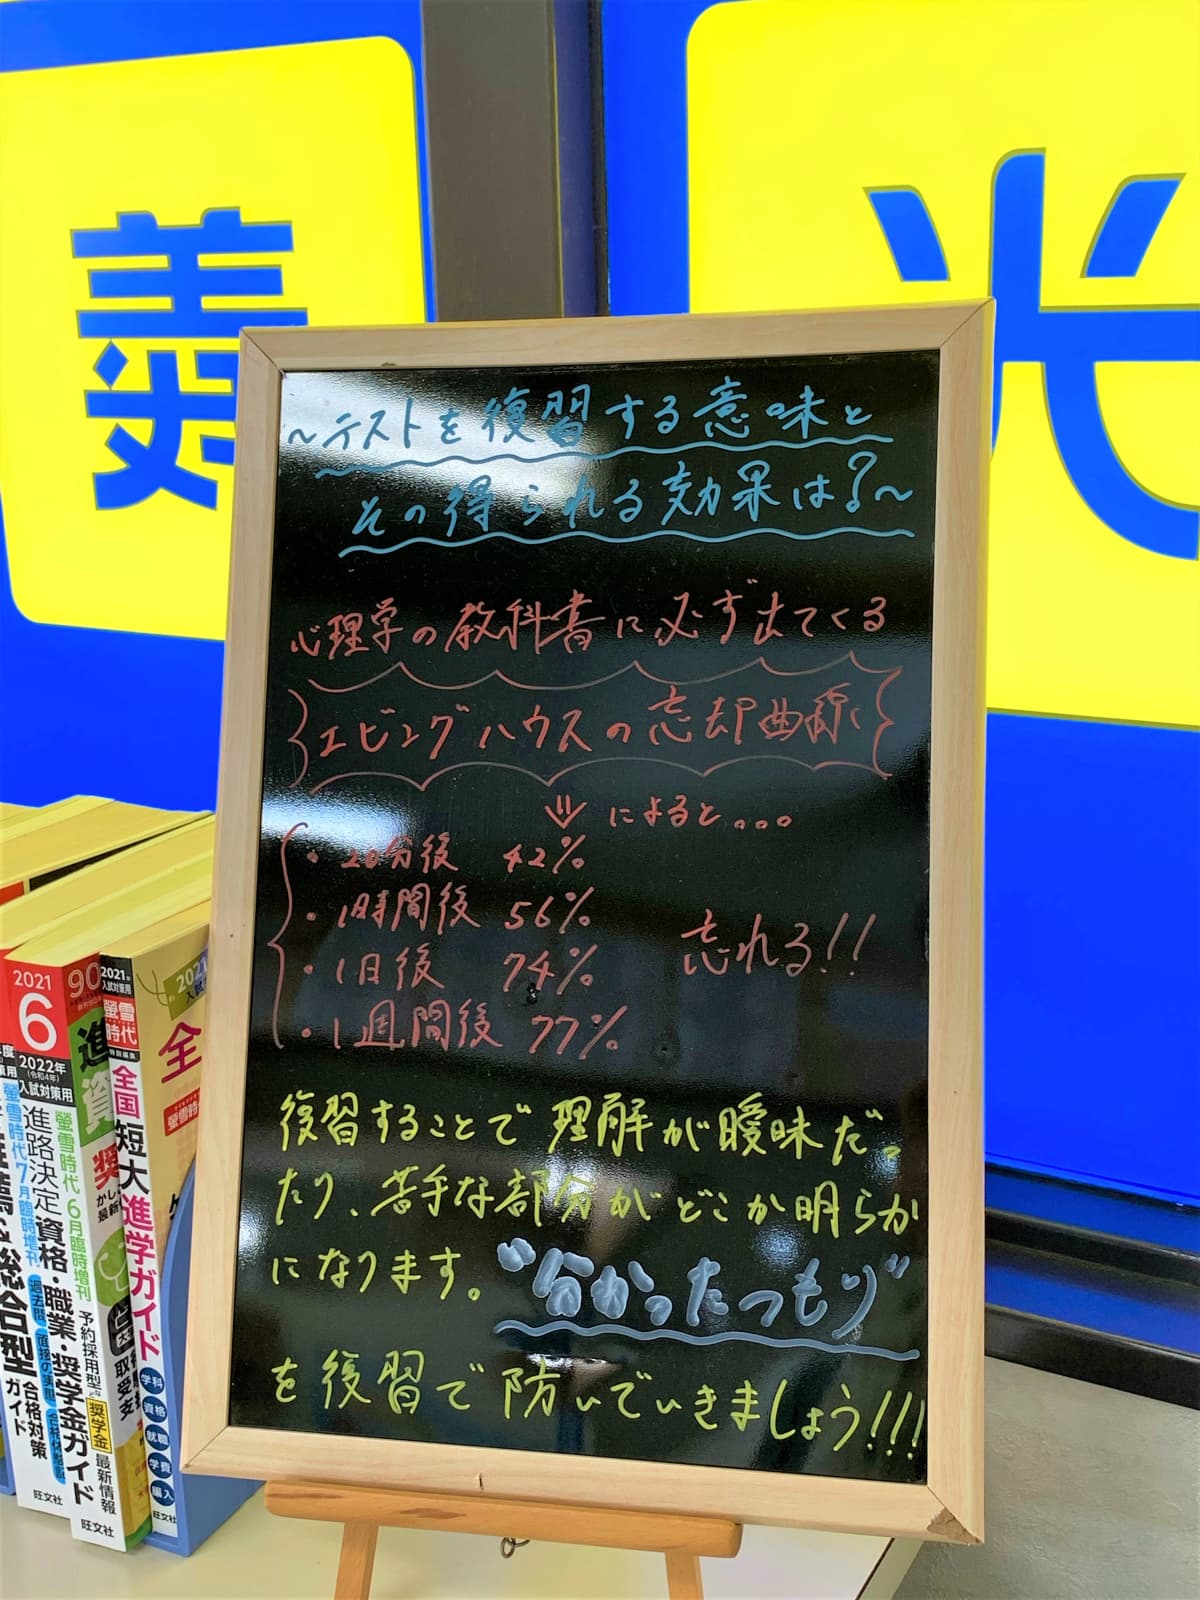 義
光
~テストを復習する意味と
その得られる効果は?~
心理学の教科書に必ず出てくる
エビングハウスの忘却曲線
によると...
・20分後 42%
・1時間後 56%
・1日後 74%
・1週間後 77%
忘れる!!
復習することで理解が曖昧だっ
たり、苦手な部分がどこか明らか
になります。"分かったつもり"
を復習で防いでいきましょう!!!
2021
6
2022年
(令和4年)
入試対策用
進路決定 資格・職業・奨学金ガイド
螢雪時代 7月臨時増刊
総合型
合格対策
ガイド
旺文社
90
進
資
奨
螢雪時代 6月臨時増刊
予約採用型
奨学金
最新情報
旺文社
2021年
入試対策用
螢雪時代
特別編集
全国 短大進学ガイド
学科
資格
就職
学費
編入
旺文社
2021
全